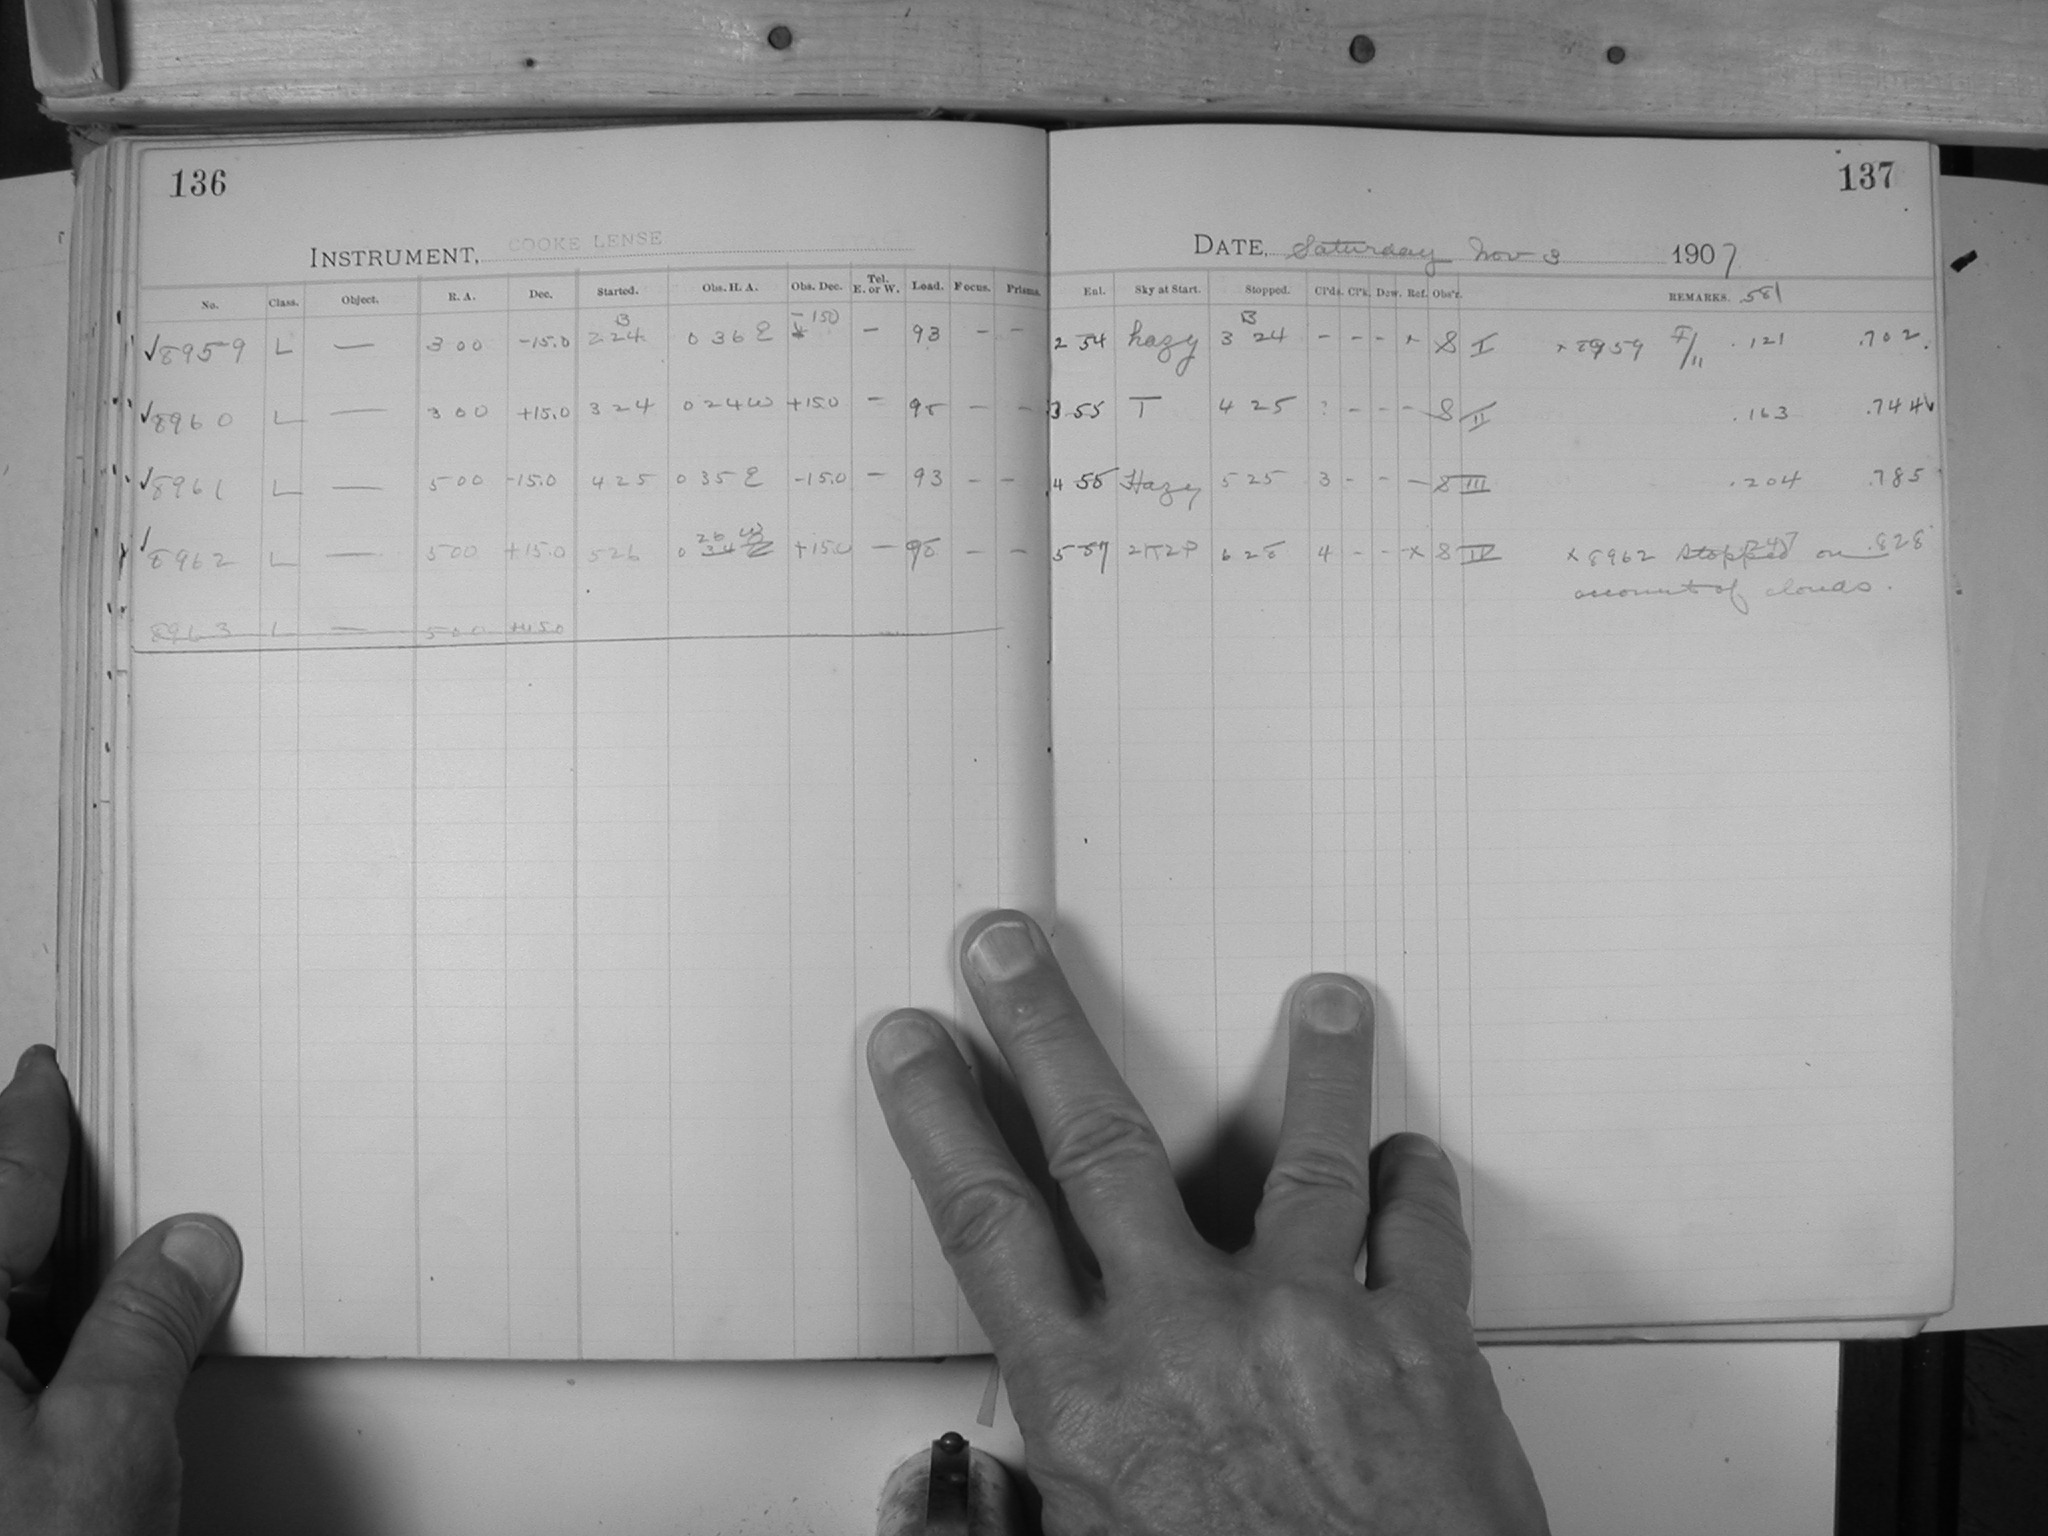 136
INSTRUMENT, COOKE LENSE
No. Class. Object. R. A. Dec. Started. Obs. H. A. Obs. Dec. Tel. E. or W. Load. Focus. Prisms.
B -150
✓8959 L — 3 00 -15.0 2 24 0 36 E — 93 - -
✓8960 L — 3 00 +15.0 3 24 0 24 W +15.0 - 95 - -
✓8961 L — 5 00 -15.0 4 25 0 35 E -15.0 - 93 - -
26 W
✓8962 L — 5 00 +15.0 5 26 0 34 E +15.0 - 95 - -
8963 L — 5 00 +45.0
137
DATE, Saturday Nov 3 1907
Enl. Sky at Start. Stopped. Cl'ds. Cl'k. Dew. Ref. Obs'r. REMARKS. 581
B
2 54 hazy 3 24 - - - x S I x 8959 I/11 .121 .702.
3 55 T 4 25 ? - - - S II .163 .744
4 55 Hazy 5 25 3 - - - S III .204 .785
5 57 2K2P 6 28 4 - - x S IV x 8962 stopped on .247 .828
account of clouds.